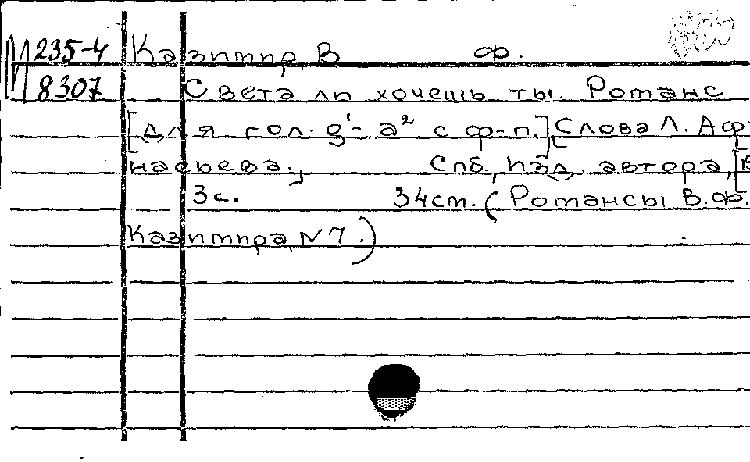 М 235-4 Казимир, В ф.
8307 Света ли хочешь ты. Романс
[для гол. g¹- a² с ф-п.] Слова Л. Аф
насьева.
Спб, изд. автора, [
3с. 34см. (Романсы В.Ф.
Казимира N 7.)